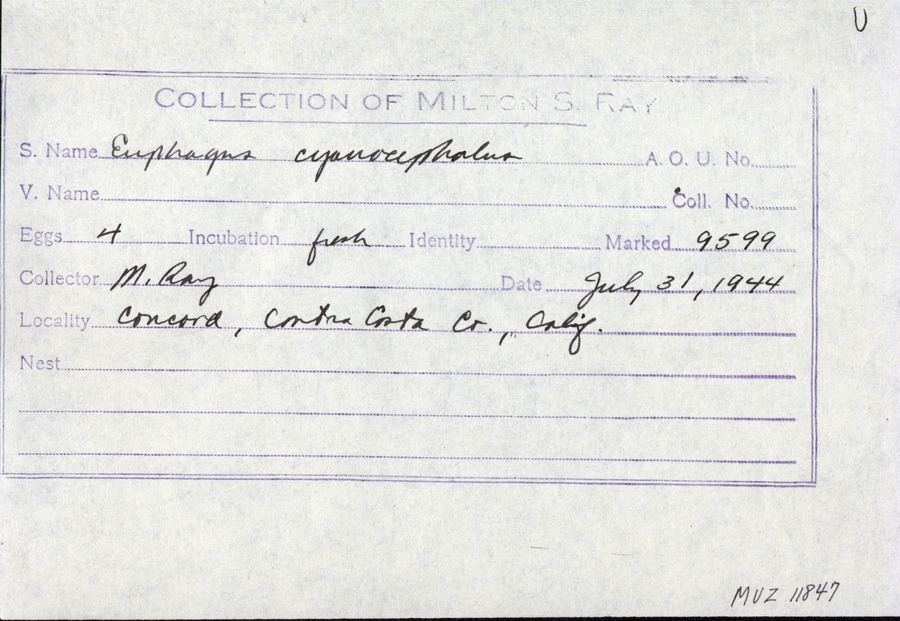 U
COLLECTION OF MILTON S. RAY
S. Name Euphagus cyanocephalus A. O. U. No.
V. Name Coll. No.
Eggs 4 Incubation fresh Identity Marked 9599
Collector M. Ray Date July 31, 1944
Locality Concord, Contra Costa Co., Calif.
Nest
MVZ 11847